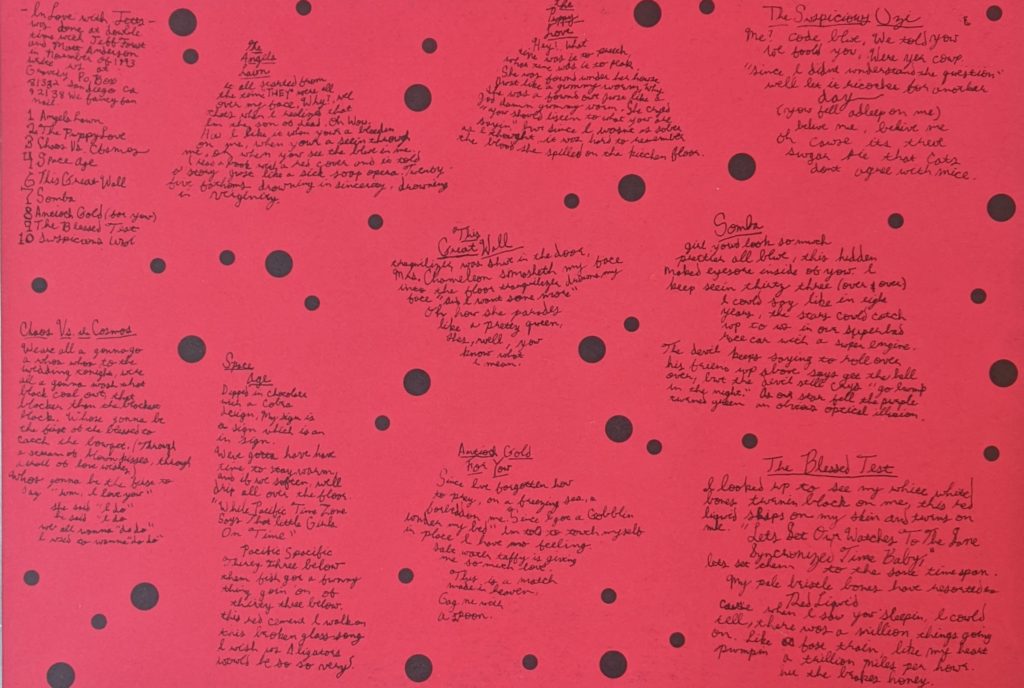 - In Love with Jetts -
was done at double
time with Jeff Forest
and Matt Anderson
in November of 1993
write us at
Gravity, Po, Box
81332 San Diego Ca
92138 We fancy fan
mail.
1 Angels Fawn
2 The Puppy Love
3 Chaos Vs. Cosmos
4 Space Age
6 This Great Wall
7 Somba
8 Antioch Gold (for you)
9 The Blessed Test
10 Suspicious Uzi
the
Angels
Fawn
is all started from
the semi THEY were all
over my face. Why?, well
thats when I realized that
Im the son of dead. Oh Wow,
How I like it when your a bleeden
on me, when your a seein through
me, oh when you see the blue in me.
I read a book with a red cover and it told
a story frose like a sick soap opera. Twenty
five fathoms drowning in sincerity, drowning
in virginity.
the
Puppy
Love
Hey! What
time was it to preach
what time was it to peak.
She was found under her house
frose like a gummy worm. Why
She was a found out frose like a
god damn gummy worm. She cryed
"You should listen to what you are
sayin", but since I wasnt as sober
as I thought, it was hard to remember
the blood she spilled on the kitchen floor.
The Suspicious Uzi
Me! code blue, We told you
we foold you, Were yer cowp.
"since I didnt understand the question"
well let it recorder for another
day
(you fell asleep on me)
belive me, belive me
oh cause its true
sugar pie that cats
dont agree with mice.
"This
Great Wall
tranquilizer was shut in the door,
Mrs. Chameleon smasheth my face
into the floor tranquilizer drowns my
face "did I want some more"
Oh how she parades
like a pretty queen,
shes, well, you
know what
I mean.
Somba
girl your look so much
prettier all blue, this hidden
naked eyesore inside of you. I
keep seein thirty three (over & over)
I could say like in eight
years, the stars could catch
up to us in our superbad
race car with a super engine.
The devil keeps saying to roll over
his friend up above says get the hell
over, but the devil still crys "go bump
in the night." As our star fell the purple
turned green an obvious optical illusion.
Chaos Vs. the Cosmos
Weare all a gonna go
a whos who to the
wedding tonight, were
all a gonna wash that
black coal out, that
blacker than the blackest
black. Whose gonna be
the first of the blessed to
catch the bouqet. (Through
a stream of blown kisses, through
a scroll of love wishes)
Whos gonna be the first to
say "um, I love you"
she said "I do"
he said "I do"
we all wanna "do do"
I used to wanna "do do"
Space
Age
Dipped in chocolate
with a Cobra
design, My sign is
a sign which is an
in sign.
Were gotta have have
time to stay warm,
and if we soften, well
drip all over the floor.
"While Pacific Time Zone
Says That little Girls
On Time"
Pacific Spacific
Thirty three below
them fish got a funny
thing goin on of
thirty three below.
this red cement I walk on
this broken glass song
I wish us Aligators
would be so so very!
Antioch Gold
For You
Since Ive forgotten how
to pray, on a freezing sea, a
forbidden me. Since I got a Gobblin
under my bed Im told to touch myself
in place I have no feeling.
Salt water taffy is giving
me so much love.
This is a match
made in heaven.
Gag me with
a spoon.
The Blessed Test
I looked up to see my white white
bones turnin black on me, this red
liquid slaps on my skin and turns on
me. "
Lets Set Our Watches To The Same
Synchonized Time Baby!"
lets set them to the same timespan.
My pale bristle bones have resorted to
Red Liquid
cause when I saw you sleepin, I could
tell, there was a million things going
on. Like a fast train, like my heart
pumpin a trillion miles per hour.
hit the brakes honey.